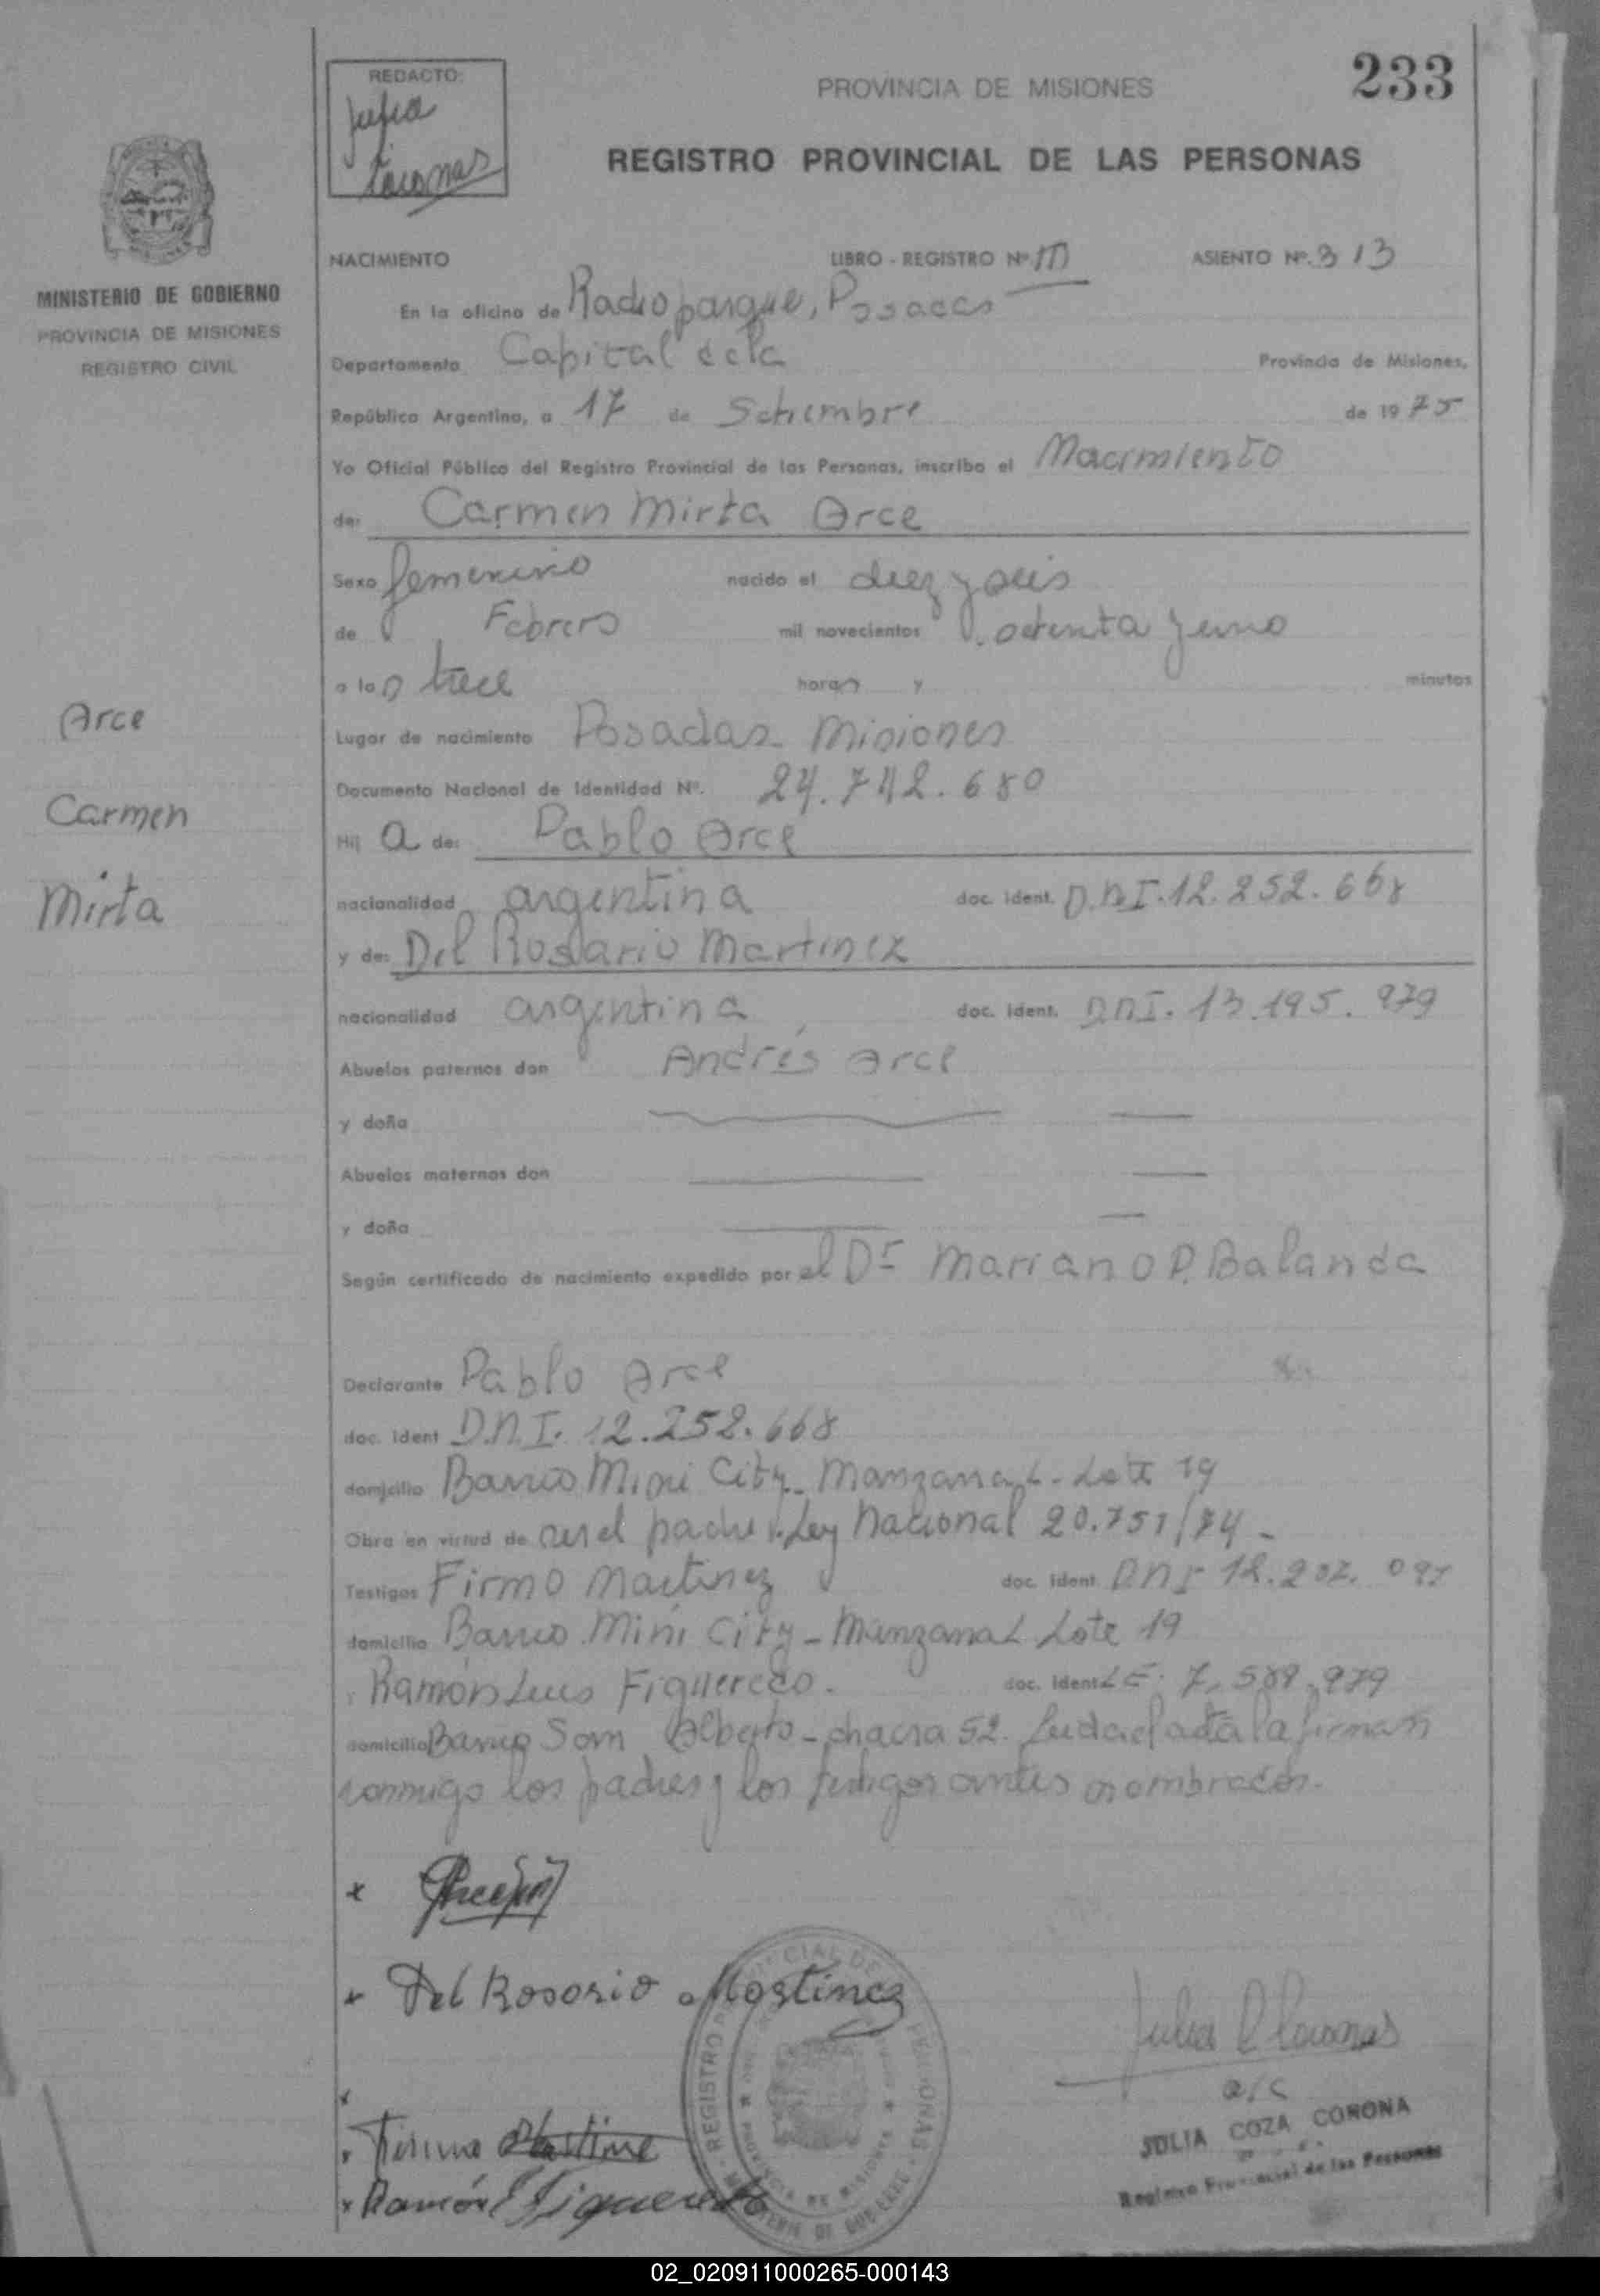 233
REDACTO:
Julia
PROVINCIA DE MISIONES
REGISTRO PROVINCIAL DE LAS PERSONAS
MINISTERIO DE GOBIERNO
PROVINCIA DE MISIONES
REGISTRO CIVIL
NACIMIENTO LIBRO - REGISTRO Nº III ASIENTO Nº. 313
En la oficina de Radioparque, Posadas
Departamento Capital de la Provincia de Misiones,
República Argentina, a 17 de Setiembre de 1975
Yo Oficial Público del Registro Provincial de las Personas, inscribo el Nacimiento
de: Carmen Mirta Arce
Sexo femenino nacido el diez y seis
de Febrero mil novecientos setenta y uno
a las trece horas y minutos
Lugar de nacimiento Posadas - Misiones
Documento Nacional de Identidad Nº. 24.742.680
Hij a de: Pablo Arce
nacionalidad argentina doc. ident. D.N.I. 12.252.668
y de: Del Rosario Martinez
nacionalidad argentina doc. ident. D.N.I. 13.195.979
Abuelos paternos don Andrés Arce
y doña
Abuelos maternos don
y doña
Según certificado de nacimiento expedido por el Dr Mariano P. Balanda
Arce
Carmen
Mirta
Declarante Pablo Arce
doc. ident D.N.I. 12.252.668
domicilio Barrio Mini City - Manzana L - Lote 19
Obra en virtud de ser el padre Ley Nacional 20.751/74 -
Testigos Firmo Martinez doc. ident. D.N.I 12.207.097
domicilio Barrio Mini City - Manzana L Lote 19
y Ramón Luis Figueredo. doc. ident L E. 7.589.979
domicilio Barrio San Alberto - chacra 52. Leida el acta la firman
conmigo los padres y los testigos antes nombrados.
Del Rosario Martinez
Firmo Martine
Ramón Figueredo
REGISTRO PROVINCIAL DE LAS PERSONAS
PROVINCIA DE MISIONES
Julia
a/c
JULIA COZA CORONA
Registro Provincial de las Personas
02_020911000265-000143